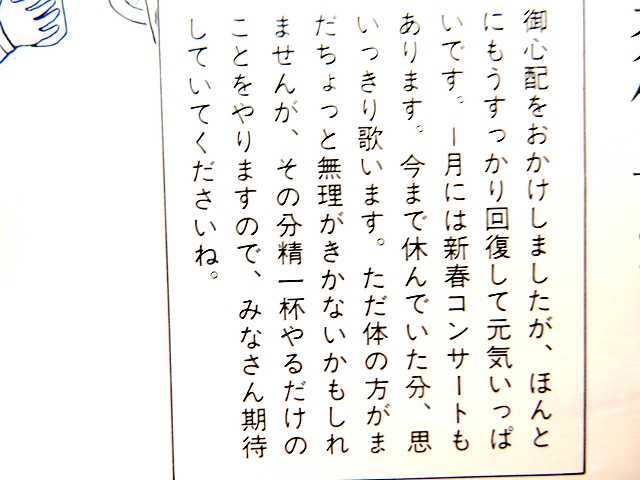 御心配をおかけしましたが、ほんと
にもうすっかり回復して元気いっぱ
いです。一月には新春コンサートも
あります。今まで休んでいた分、思
いっきり歌います。ただ体の方がま
だちょっと無理がきかないかもしれ
ませんが、その分精一杯やるだけの
ことをやりますので、みなさん期待
していてくださいね。